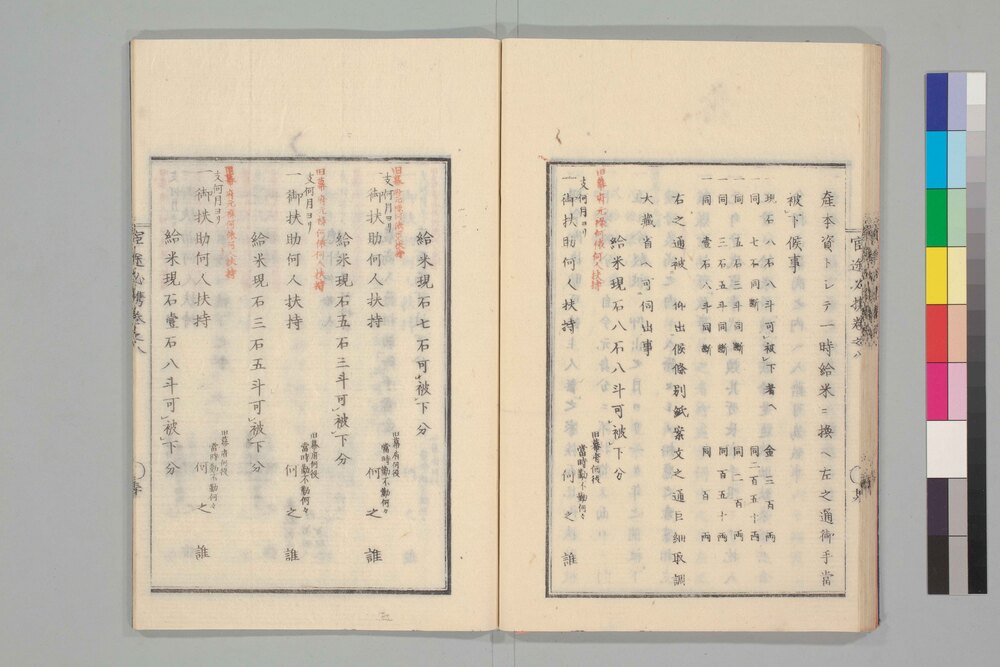 産本資トシテ一時給米ニ換ヘ左之通御手当
被下候事
一現石八石八斗可被下者ヘ 金三百両
一同 七石同断 同二百五十両
一同 五石三斗同断 同二百両
一同 三石五斗同断 同百五十両
一同 壹石八斗同断 同百両
右之通被 仰出候條別紙案文之通巨細取調
大藏省ヘ可伺出事
給米現石八石八斗可被下分
旧幕府元様何儀何人扶持
支何月ヨリ
一御扶助何人扶持 何之誰
旧幕府何役
當時勤不勤何々
給米現石七石可被下分
支何月ヨリ
一御扶助何人扶持 何之誰
旧幕府何役
當時勤不勤何々
給米現石五石三斗可被下分
支何月ヨリ
一御扶助何人扶持 何之誰
旧幕府何役
當時勤不勤何々
給米現石三石五斗可被下分
支何月ヨリ
一御扶助何人扶持 何之誰
旧幕府何役
當時勤不勤何々
給米現石壹石八斗可被下分